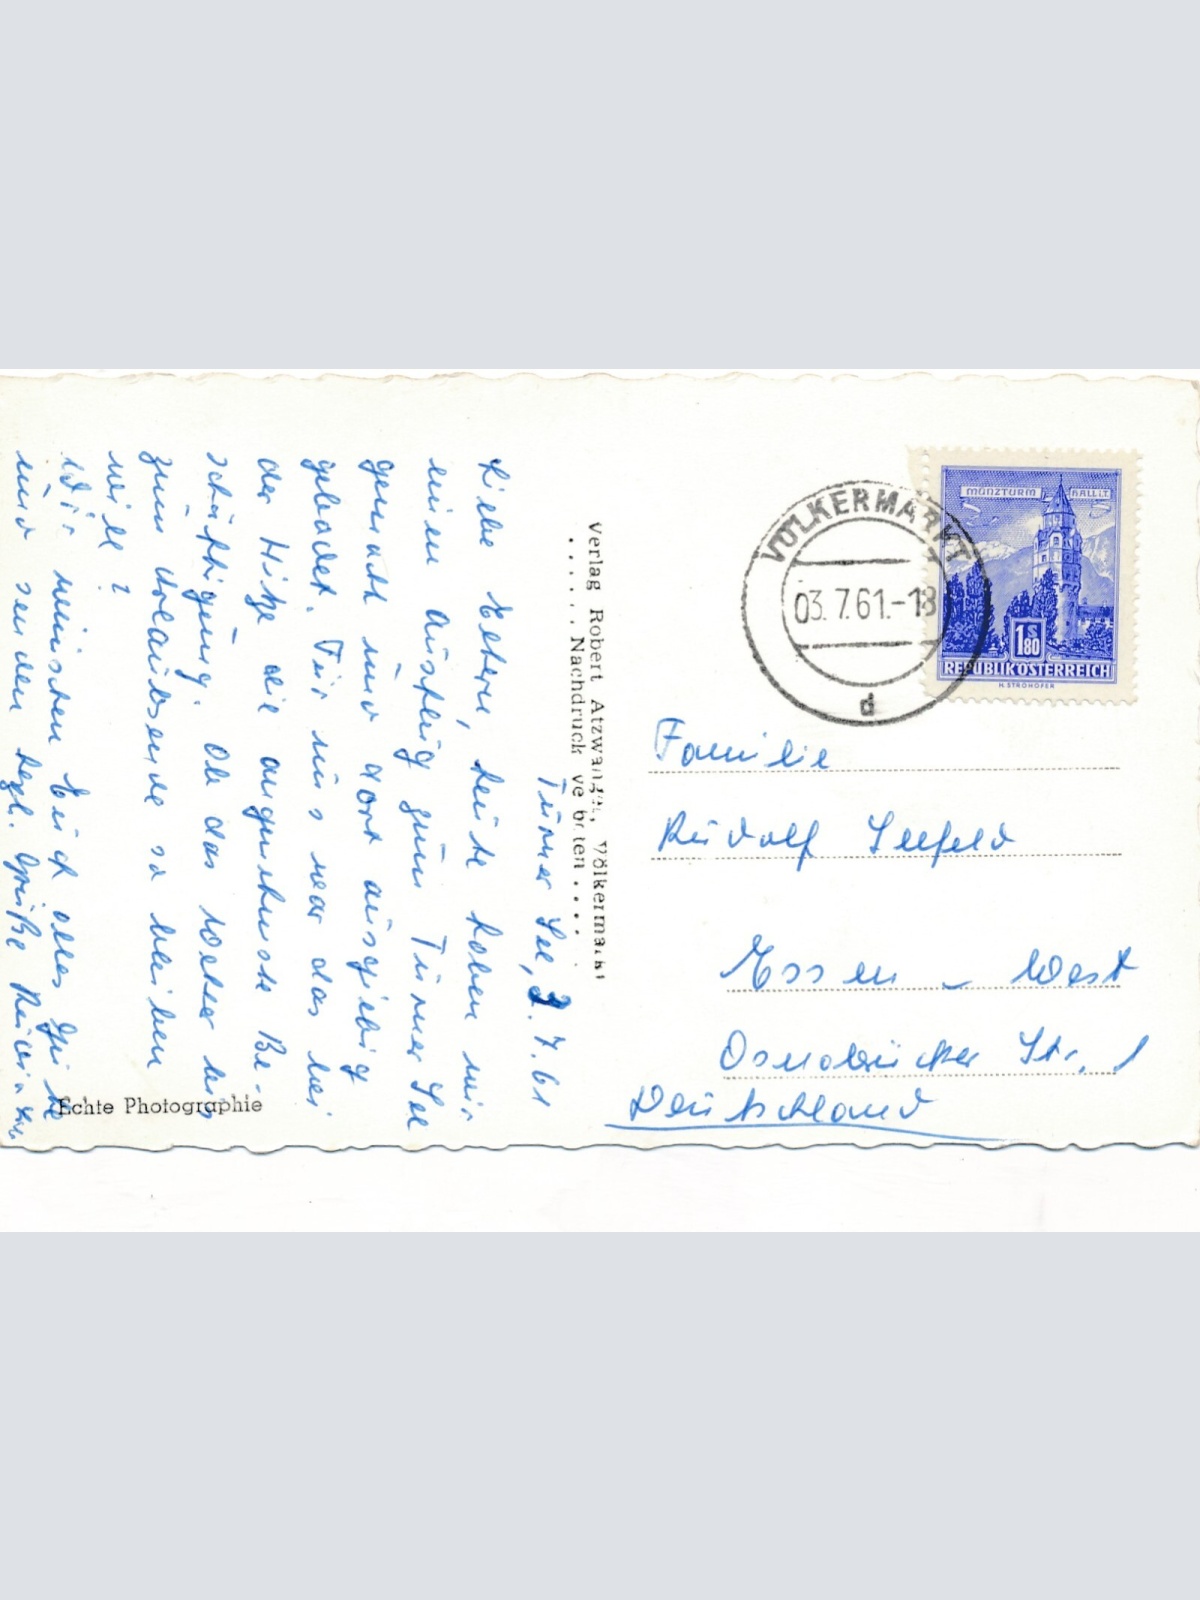 Turner See, 3.7.61
Liebe Eltern, heute haben wir
einen Ausflug zum Turner See
gemacht und dort ausgiebig
gebadet. Für uns war das bei
der Hitze die angenehmste Be-
schäftigung. Ob das Wetter bis
zum Urlaubsende so bleiben
will?
Wir wünschen Euch alles Gute
und senden herzl. Grüße
Echte Photographie
Verlag Robert Atzwanger, Völkermarkt
..... Nachdruck verboten ....
VÖLKERMARKT
03.7.61.-18
d
MÜNZTURM HALL I.T.
1 S 80
REPUBLIK ÖSTERREICH
H. STROHOFER
Familie
Rudolf Seefeld
Essen - West
Osnabrücker Str. 1
Deutschland